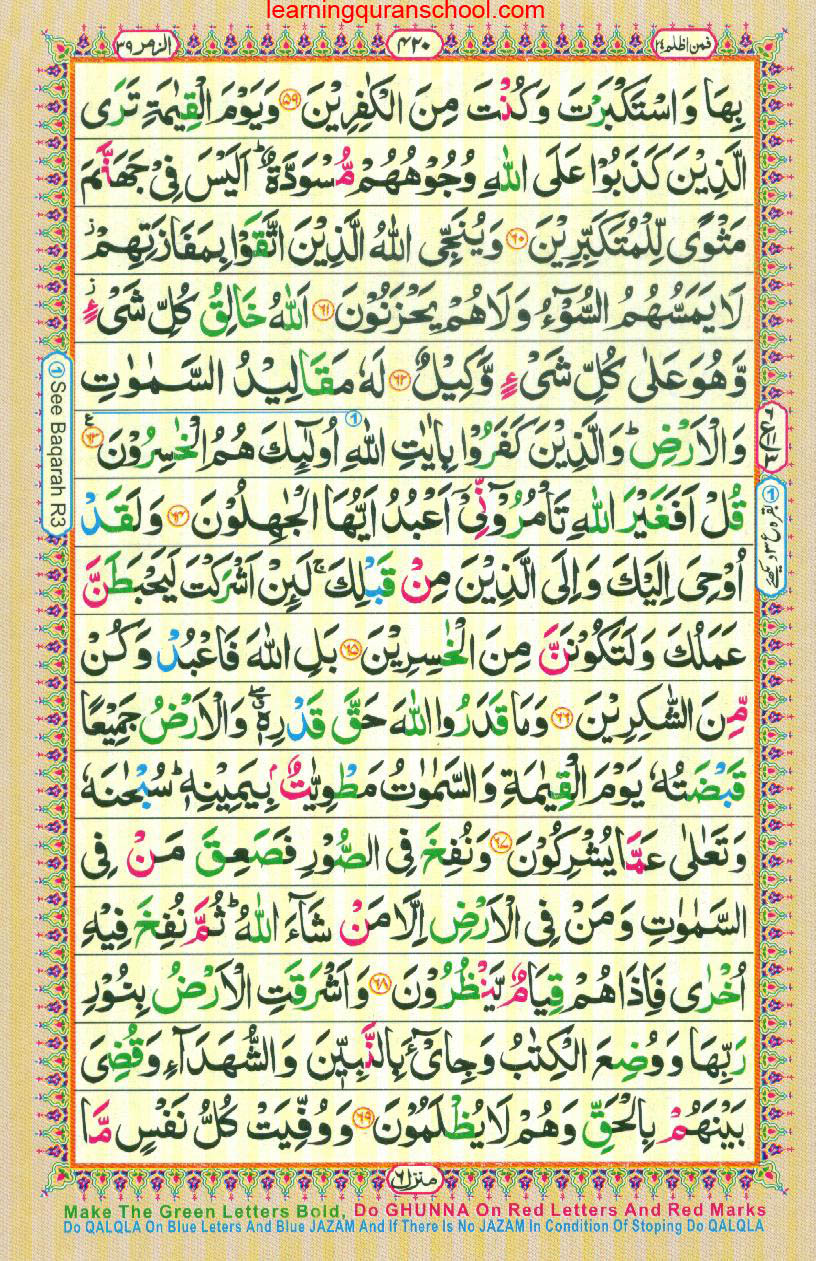 learningquranschool.com
الزمر ٣٩
٤٢٠
فمن اظلم ٢٤
بِهَا وَاسْتَكْبَرْتَ وَكُنْتَ مِنَ الْكٰفِرِيْنَ ۝٥٩ وَيَوْمَ الْقِيٰمَةِ تَرَى
الَّذِيْنَ كَذَبُوْا عَلَى اللّٰهِ وُجُوْهُهُمْ مُّسْوَدَّةٌ ؕ اَلَيْسَ فِيْ جَهَنَّمَ
مَثْوًى لِّلْمُتَكَبِّرِيْنَ ۝٦٠ وَيُنَجِّى اللّٰهُ الَّذِيْنَ اتَّقَوْا بِمَفَازَتِهِمْ ز
لَا يَمَسُّهُمُ السُّوْٓءُ وَلَا هُمْ يَحْزَنُوْنَ ۝٦١ اَللّٰهُ خَالِقُ كُلِّ شَىْءٍ ز
وَّهُوَ عَلٰى كُلِّ شَىْءٍ وَّكِيْلٌ ۝٦٢ لَهٗ مَقَالِيْدُ السَّمٰوٰتِ
وَالْاَرْضِ ؕ وَالَّذِيْنَ كَفَرُوْا بِاٰيٰتِ اللّٰهِ اُولٰٓئِكَ هُمُ الْخٰسِرُوْنَ ۝٦٣ ع
قُلْ اَفَغَيْرَ اللّٰهِ تَاْمُرُوْٓنِّيْٓ اَعْبُدُ اَيُّهَا الْجٰهِلُوْنَ ۝٦٤ وَلَقَدْ
اُوْحِىَ اِلَيْكَ وَاِلَى الَّذِيْنَ مِنْ قَبْلِكَ ۚ لَئِنْ اَشْرَكْتَ لَيَحْبَطَنَّ
عَمَلُكَ وَلَتَكُوْنَنَّ مِنَ الْخٰسِرِيْنَ ۝٦٥ بَلِ اللّٰهَ فَاعْبُدْ وَكُنْ
مِّنَ الشّٰكِرِيْنَ ۝٦٦ وَمَا قَدَرُوا اللّٰهَ حَقَّ قَدْرِهٖ ۖ وَالْاَرْضُ جَمِيْعًا
قَبْضَتُهٗ يَوْمَ الْقِيٰمَةِ وَالسَّمٰوٰتُ مَطْوِيّٰتٌۢ بِيَمِيْنِهٖ ؕ سُبْحٰنَهٗ
وَتَعٰلٰى عَمَّا يُشْرِكُوْنَ ۝٦٧ وَنُفِخَ فِى الصُّوْرِ فَصَعِقَ مَنْ فِى
السَّمٰوٰتِ وَمَنْ فِى الْاَرْضِ اِلَّا مَنْ شَآءَ اللّٰهُ ؕ ثُمَّ نُفِخَ فِيْهِ
اُخْرٰى فَاِذَا هُمْ قِيَامٌ يَّنْظُرُوْنَ ۝٦٨ وَاَشْرَقَتِ الْاَرْضُ بِنُوْرِ
رَبِّهَا وَوُضِعَ الْكِتٰبُ وَجِاىْٓءَ بِالنَّبِيّٖنَ وَالشُّهَدَآءِ وَقُضِىَ
بَيْنَهُمْ بِالْحَقِّ وَهُمْ لَا يُظْلَمُوْنَ ۝٦٩ وَوُفِّيَتْ كُلُّ نَفْسٍ مَّا
① See Baqarah R3
منزل ٦
Make The Green Letters Bold, Do GHUNNA On Red Letters And Red Marks
Do QALQLA On Blue Leters And Blue JAZAM And If There Is No JAZAM In Condition Of Stoping Do QALQLA